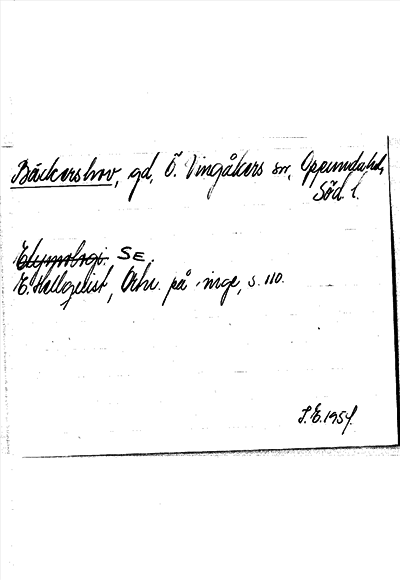 Bäckershov, gd, Ö. Vingåkers sn, Oppunda hd,
Söd. l.
Etymologi. SE.
E. Hellquist, Ortn. på -inge, s. 110.
S.E. 1954.